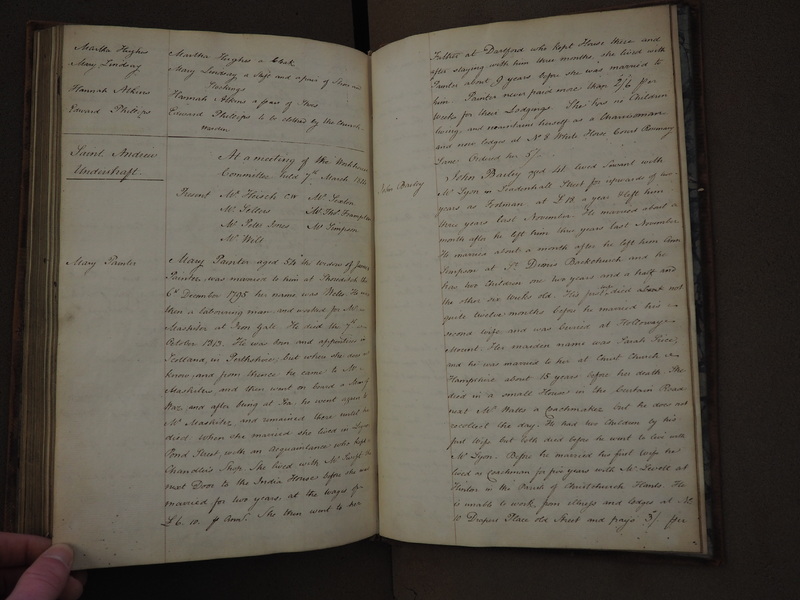 Martha Hughes
Martha Hughes a Cloak
Mary Lindsay
Mary Lindsay a Shift and a pair of Shoes and
Stockings
Hannah Atkins
Hannah Atkins a pair of Stays
Edward Phillips
Edward Phillips to be clothed by the Church
warden
Saint Andrew
Undershaft.
At a meeting of the Workhouse
Committee held 7th March
Present Mr CW Mr
Mr Sellers Mr Thos Frampton
Mr Peter Jones Mr Simpson
Mr Wilt
Mary Painter
Mary Painter aged 54 the widow of James
Painter was married to him at Shoreditch the
6th December 1795 her name was He was
then a labouring man and worked for Mr
at Iron Gate. He died the 7th
October 1813. He was born and apprenticed in
Scotland, in Perthshire, but when she does not
know, and from thence he came to Mr
and then went on board a Man of
War, and after being at Sea he went again to
Mr and remained there until he
died. When she married she lived in
Pond Street, with an acquaintance who kept a
Chandlers Shop. She lived with Mr
next Door to the India House before she was
married for two years, at the wages of
£6.10. Ann. She then went to her
Father at Dartford who kept House there and
after staying with him three months, she lived with
Painter about 9 years before she was married to
him. Painter never paid more than 2/6 per
Week for their Lodgings. She has no Children
living, and maintains herself as a Charwoman
and now lodges at No 8 White Horse Court Rosemary
Lane. Ordered her 5/.
John Bailey
John Bailey aged 41. lived Servant with
Mr Lyon in Leadenhall Street for upwards of two
years as Footman at £18 a year & left him
three years last November. He married about a
month after he left him three years last November
He married about a month after he left him Ann
Simpson at St Dennis Backchurch and he
has two Children one two years and a half and
the other six weeks old. His first wife died about
quite twelve months before he married his
second wife, and was buried at Holloway
Mount. Her maiden name was Sarah Rice,
and he was married to her at Court Church
Hampshire about 15 years before her death. She
died in a small House in the Curtain Road
next Mr Watts a coachmaker but he does not
recollect the day. He had two Children by his
first Wife but both died before he went to live with
Mr Lyon. Before he married his first wife he
lived as Coachman for five years with Mr at
Hinton in the Parish of Christchurch Hants. He
is unable to work, from illness and lodges at No
Drapers Place old Street and pays 3/. per